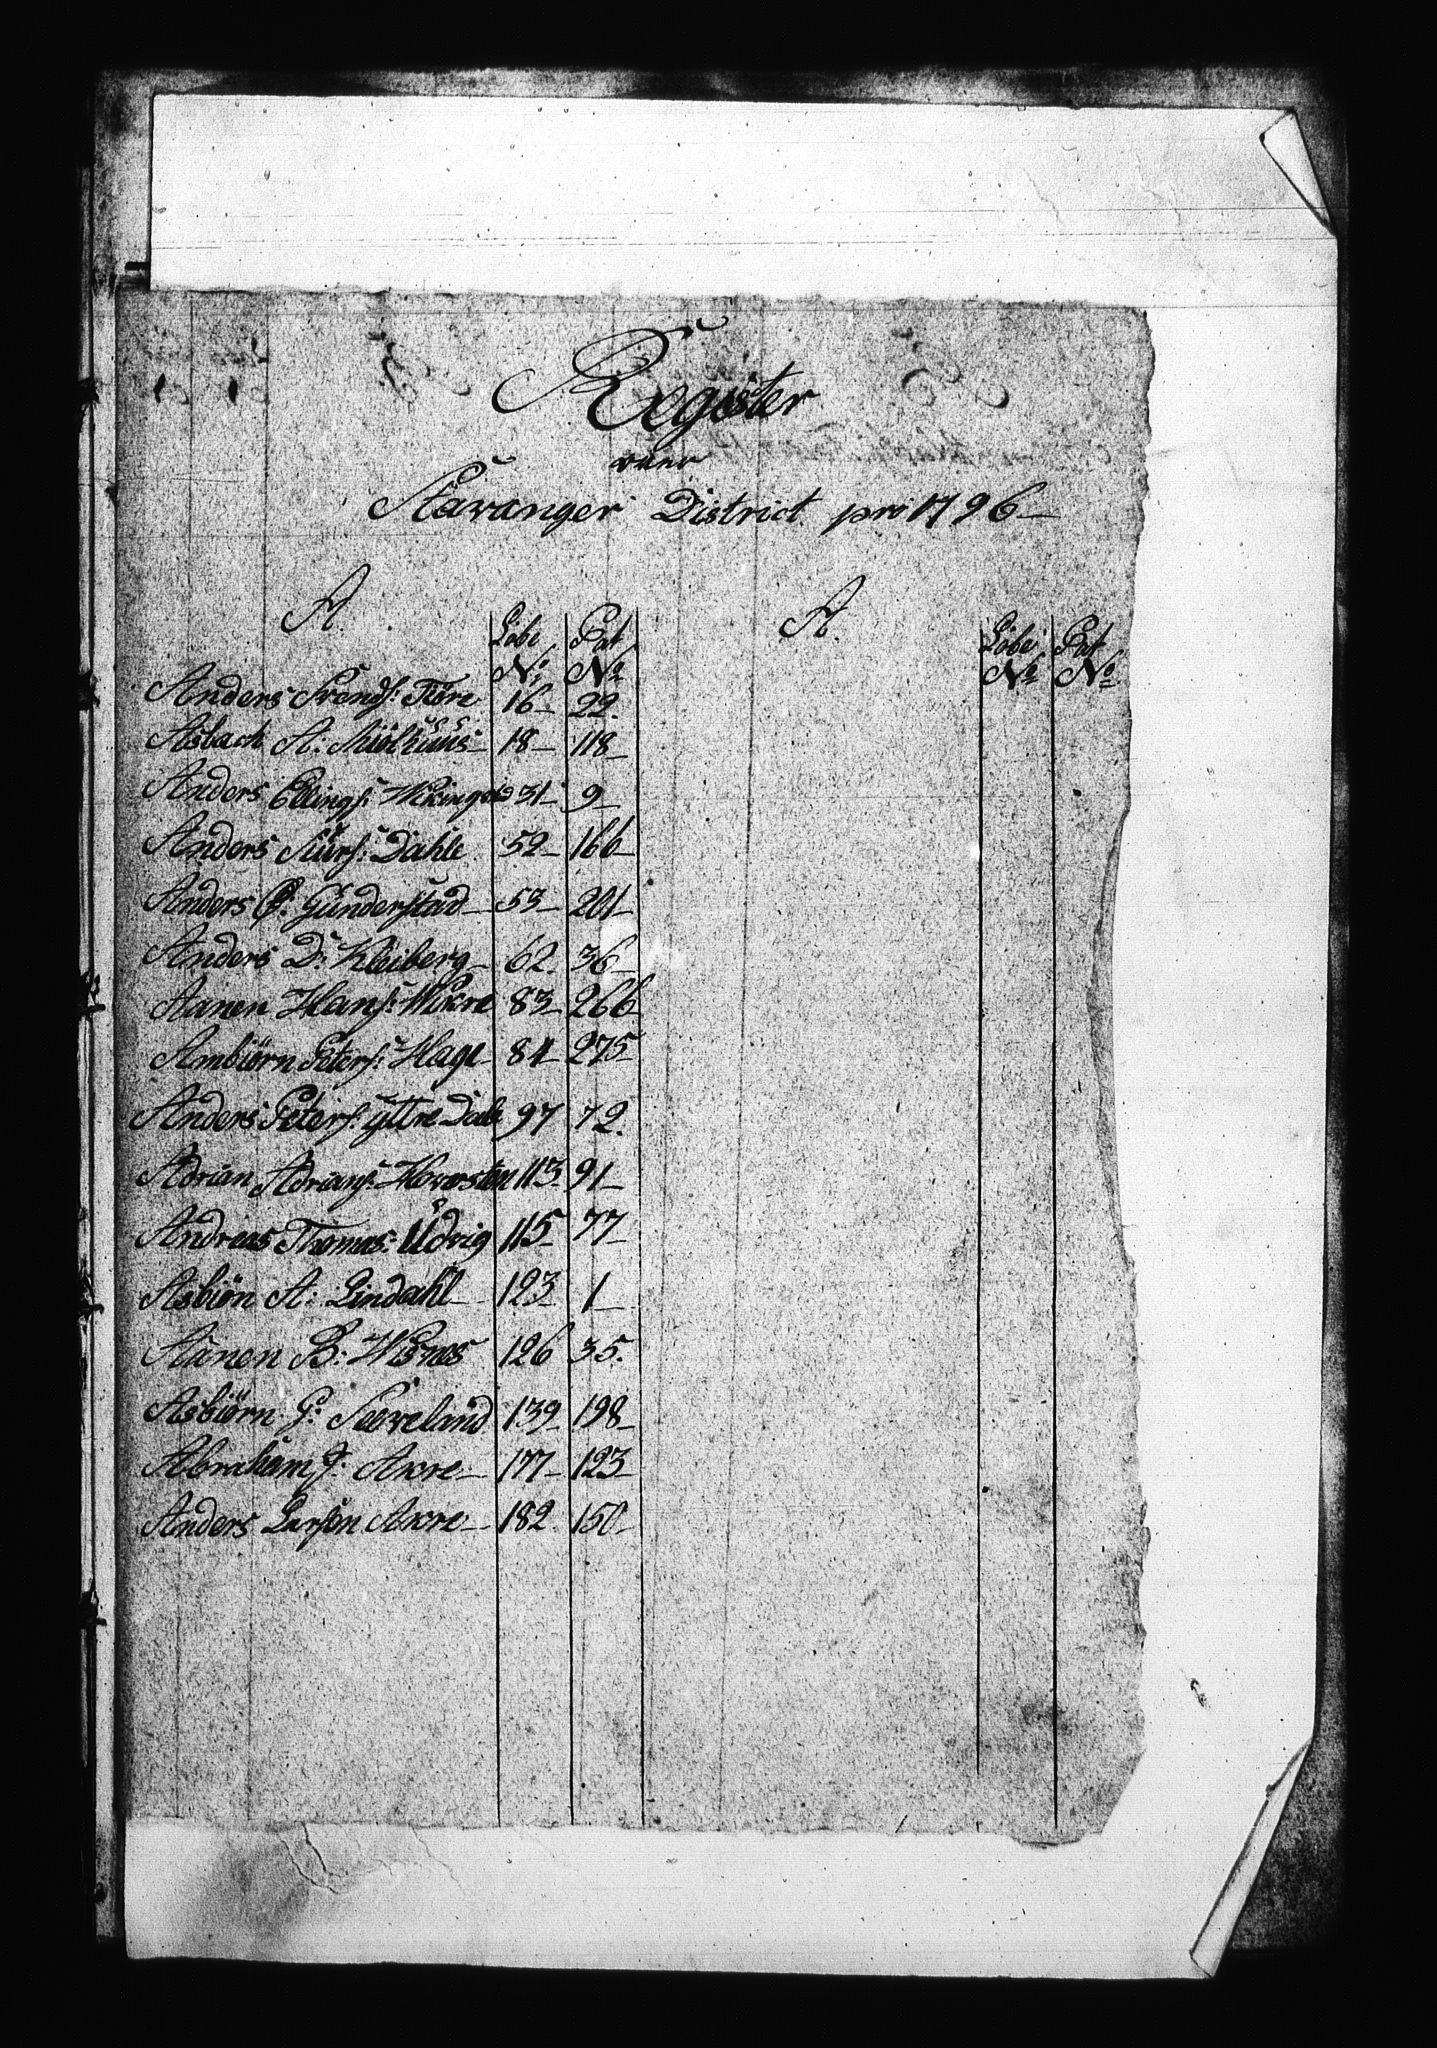 Register
over
Stavanger District pro 1796
A. A.
Löbe No. Pat No. Löbe No. Pat No.
Anders Svends: Töre 16 22.
Asbach A: Miölhuus 18 118
Anders Ellings: Wikingstad 31 9
Anders Siurs: Dahle 52 166
Anders O: Gunderstad 53 201
Anders D: Kleiberg 62 36
Aanen Hans: Wikre 83 266
Ambiörn Peters: Hage 84 275
Anders Peters: Yttre Dale 97 72.
Adrian Adrians: Hovesten 113 91
Andreas Thomas: Udvig 115 77
Asbiörn A: Lindahl 123 1
Aanen B: Wisnes 126 35.
Asbiörn G: Sæveland 139 198
Abraham J: Akre 177 123
Anders Larsön Akre 182 150